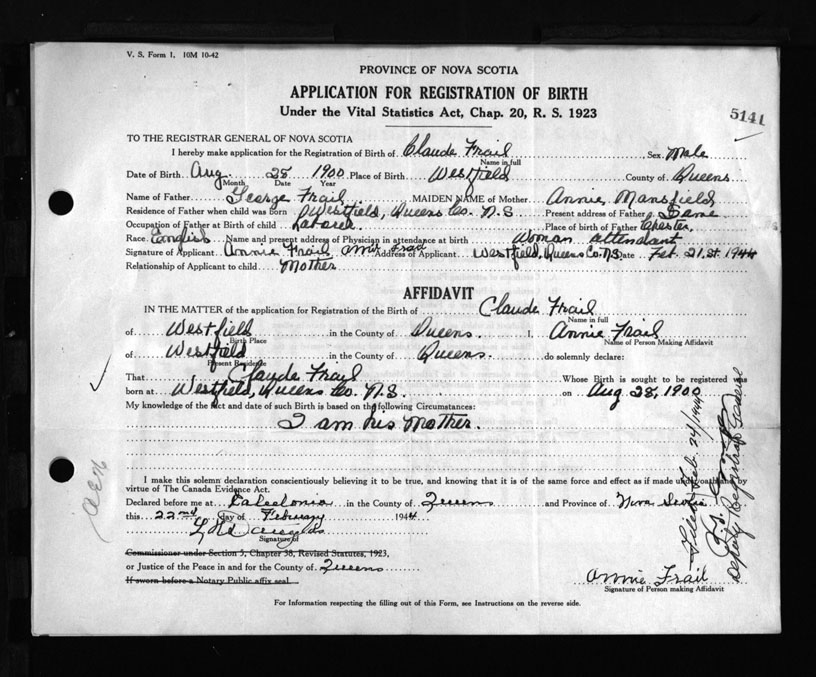 V. S. Form 1. 10M 10-42
PROVINCE OF NOVA SCOTIA
APPLICATION FOR REGISTRATION OF BIRTH
Under the Vital Statistics Act, Chap. 20, R. S. 1923
5141
TO THE REGISTRAR GENERAL OF NOVA SCOTIA
I hereby make application for the Registration of Birth of Claude Frail Sex Male
Name in full
Date of Birth Aug. 28 1900 Place of Birth Westfield County of Queens
Month Date Year
Name of Father George Frail MAIDEN NAME of Mother Annie Mansfield
Residence of Father when child was born Westfield, Queens Co. N.S. Present address of Father Same
Occupation of Father at Birth of child Laborer Place of birth of Father Chester
Race English Name and present address of Physician in attendance at birth Woman attendant
Signature of Applicant Annie Frail Address of Applicant Westfield, Queens Co. N.S Date Feb. 21 st. 1944
Relationship of Applicant to child Mother
AFFIDAVIT
IN THE MATTER of the application for Registration of the Birth of Claude Frail
Name in full
of Westfield in the County of Queens. I, Annie Frail
Birth Place Name of Person Making Affidavit
of Westfield in the County of Queens. do solemnly declare:
Present Residence
That Claude Frail Whose Birth is sought to be registered was
born at Westfield, Queens Co. N.S. on Aug 28, 1900
My knowledge of the fact and date of such Birth is based on the following Circumstances:
I am his Mother.
I make this solemn declaration conscientiously believing it to be true, and knowing that it is of the same force and effect as if made under oath and by
virtue of The Canada Evidence Act.
Declared before me at Caledonia in the County of Queens and Province of Nova Scotia
this 22nd day of February 1944
Signature of
Commissioner under Section 5, Chapter 38, Revised Statutes, 1923,
or Justice of the Peace in and for the County of Queens
If sworn before a Notary Public affix seal.
Annie Frail
Signature of Person making Affidavit
For Information respecting the filling out of this Form, see Instructions on the reverse side.
Filed Feb. 24/1944
Deputy Registrar General